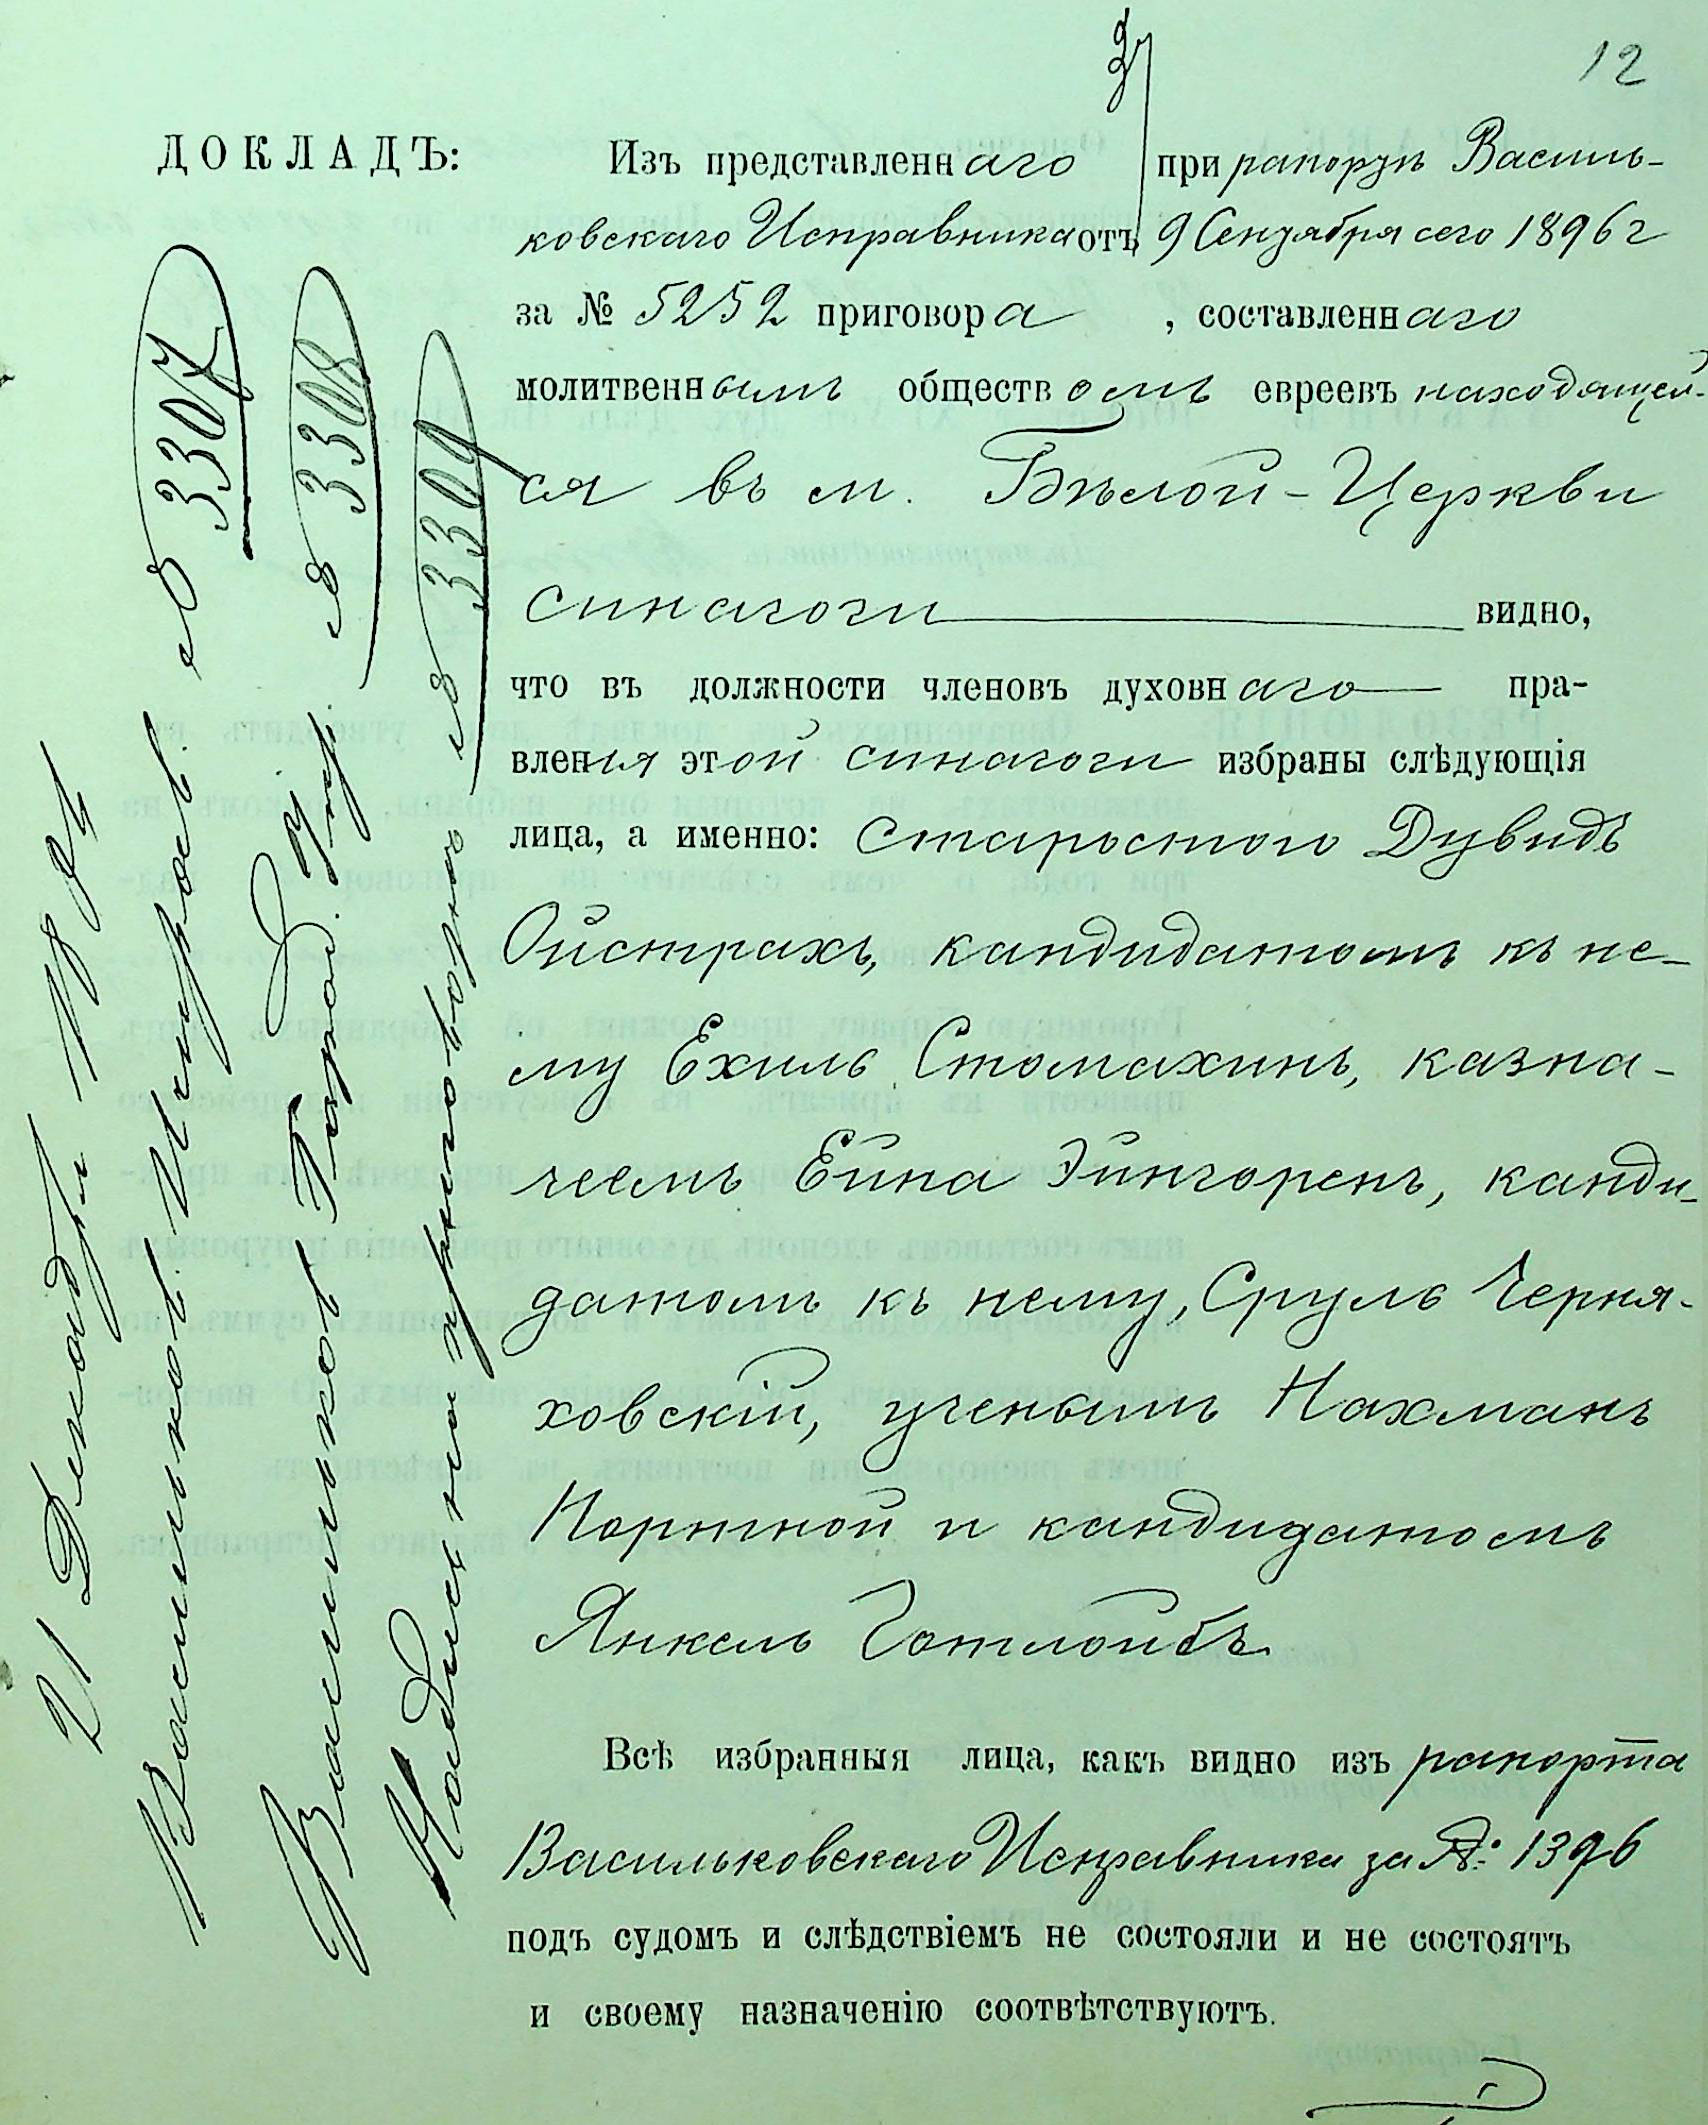 12
ДОКЛАДЪ:
Изъ представленнаго при рапортѣ Василь-
ковскаго Исправника отъ 9 Сентября сего 1896 г
за № 5252 приговора , составленнаго
молитвеннымъ обществомъ евреевъ находящей-
ся въ м. Бѣлой-Церкви
синагоги видно,
что въ должности членовъ духовнаго пра-
вленія этой синагоги избраны слѣдующія
лица, а именно: старостою Дувидъ
Ойстрахъ, кандидатомъ къ не-
му Ехиль Стомахинъ, казна-
чеемъ Ейна Эйнгоренъ, канди-
датомъ къ нему, Сруль Черня-
ховскій, ученымъ Нахманъ
Портной и кандидатомъ
Янкель Готлойбъ.
Всѣ избранныя лица, какъ видно изъ рапорта
Васильковскаго Исправника за №: 1396
подъ судомъ и слѣдствіемъ не состояли и не состоятъ
и своему назначенію соотвѣтствуютъ.
21 Декабря
Васильков. Исправ. № 3307
Васильков Город. Упр. № 3308
Надпись на приговорѣ № 3309